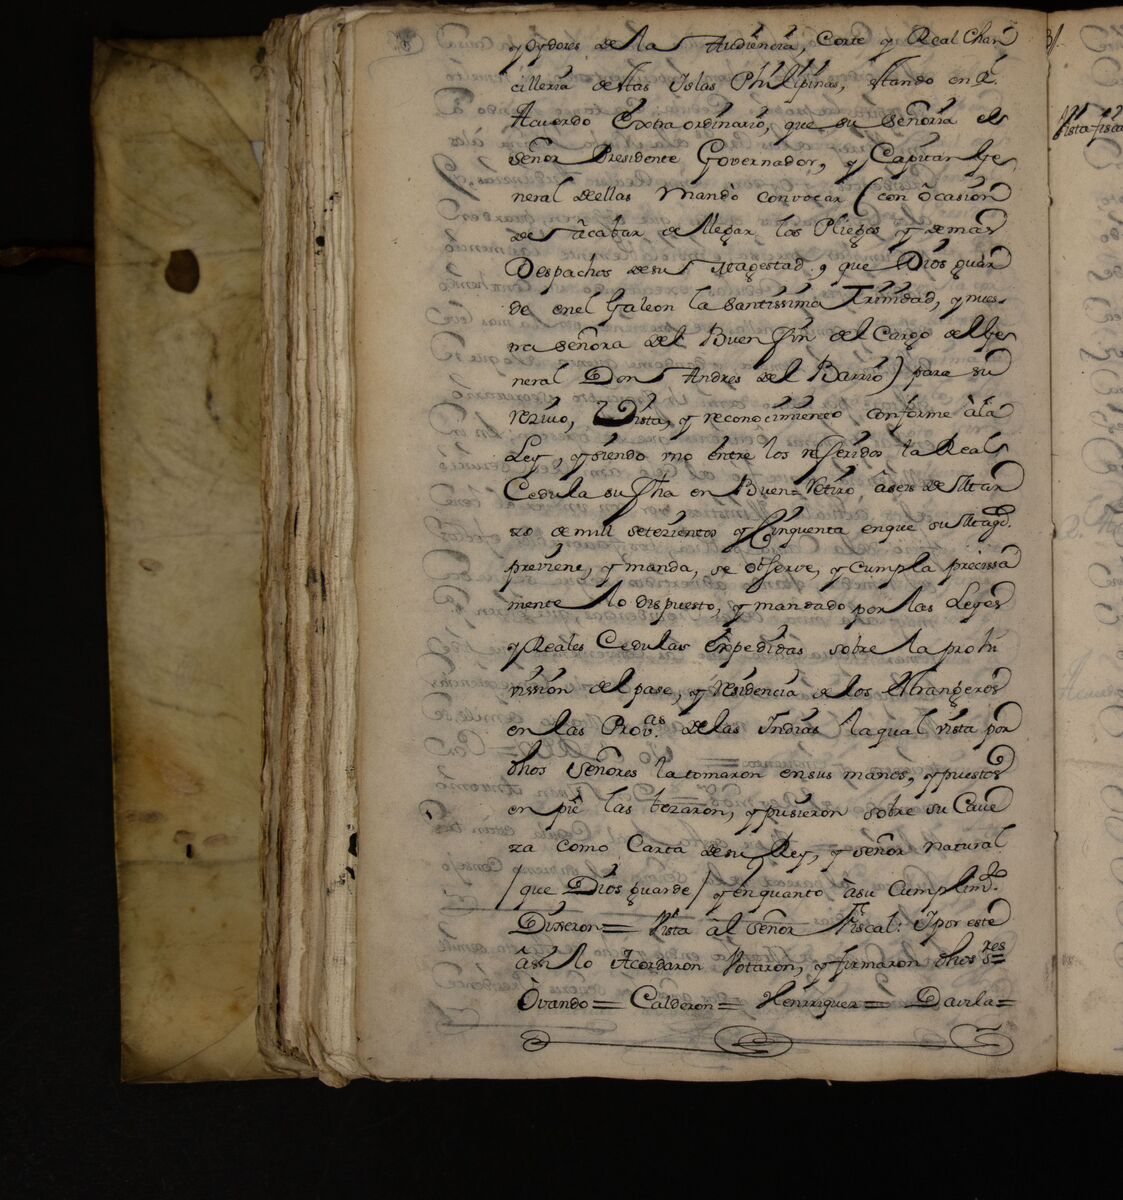 y Oydores de la Audiencia, Corte y Real Chan
cilleria destas Islas Philipinas, estando en Rl.
Acuerdo Extraordinario, que su Señoria el
Señor Presidente Governador, y Capitan Ge
neral dellas mandò convocar (con òcasion
de àcabar de llegar los Pliegos y demas
Despachos de su Magestad, que Dios guar
de en el Galeon la Santissima Trinidad, y nues
tra Señora del Buen fin del Cargo del Ge
neral Don Andres del Barrio) para su
reziuo, Vista, y reconocimiento conforme àla
Ley, y siendo uno entre los referidos la Real
Cedula su fha en Buen-Retiro àseis de Mar
zo de mill setezientos y Cinquenta enque su Magd.
previene, y manda, se observe, y cumpla precissa
mente lo dispuesto, y mandado por las Leyes
y Reales Cedulas Expedidas sobre la prohi
vission del pase, y residencia de los estrangeros
en las Provas. de las Indias la qual vista por
dhos Señores la tomaron en sus manos, y puestos
en pie las bezaron, y pusieron sobre su Cave
za como Carta de su Rey, y señor natural
(que Dios guarde) y en quanto àsu Cumplimto.
Dixeron= Vista àl señor Fiscal: Y por este
àsi lo Acordaron Votaron, y firmaron dhos sres=
Òvando= Calderon= Henrriquez= Davila=
Vista fisca